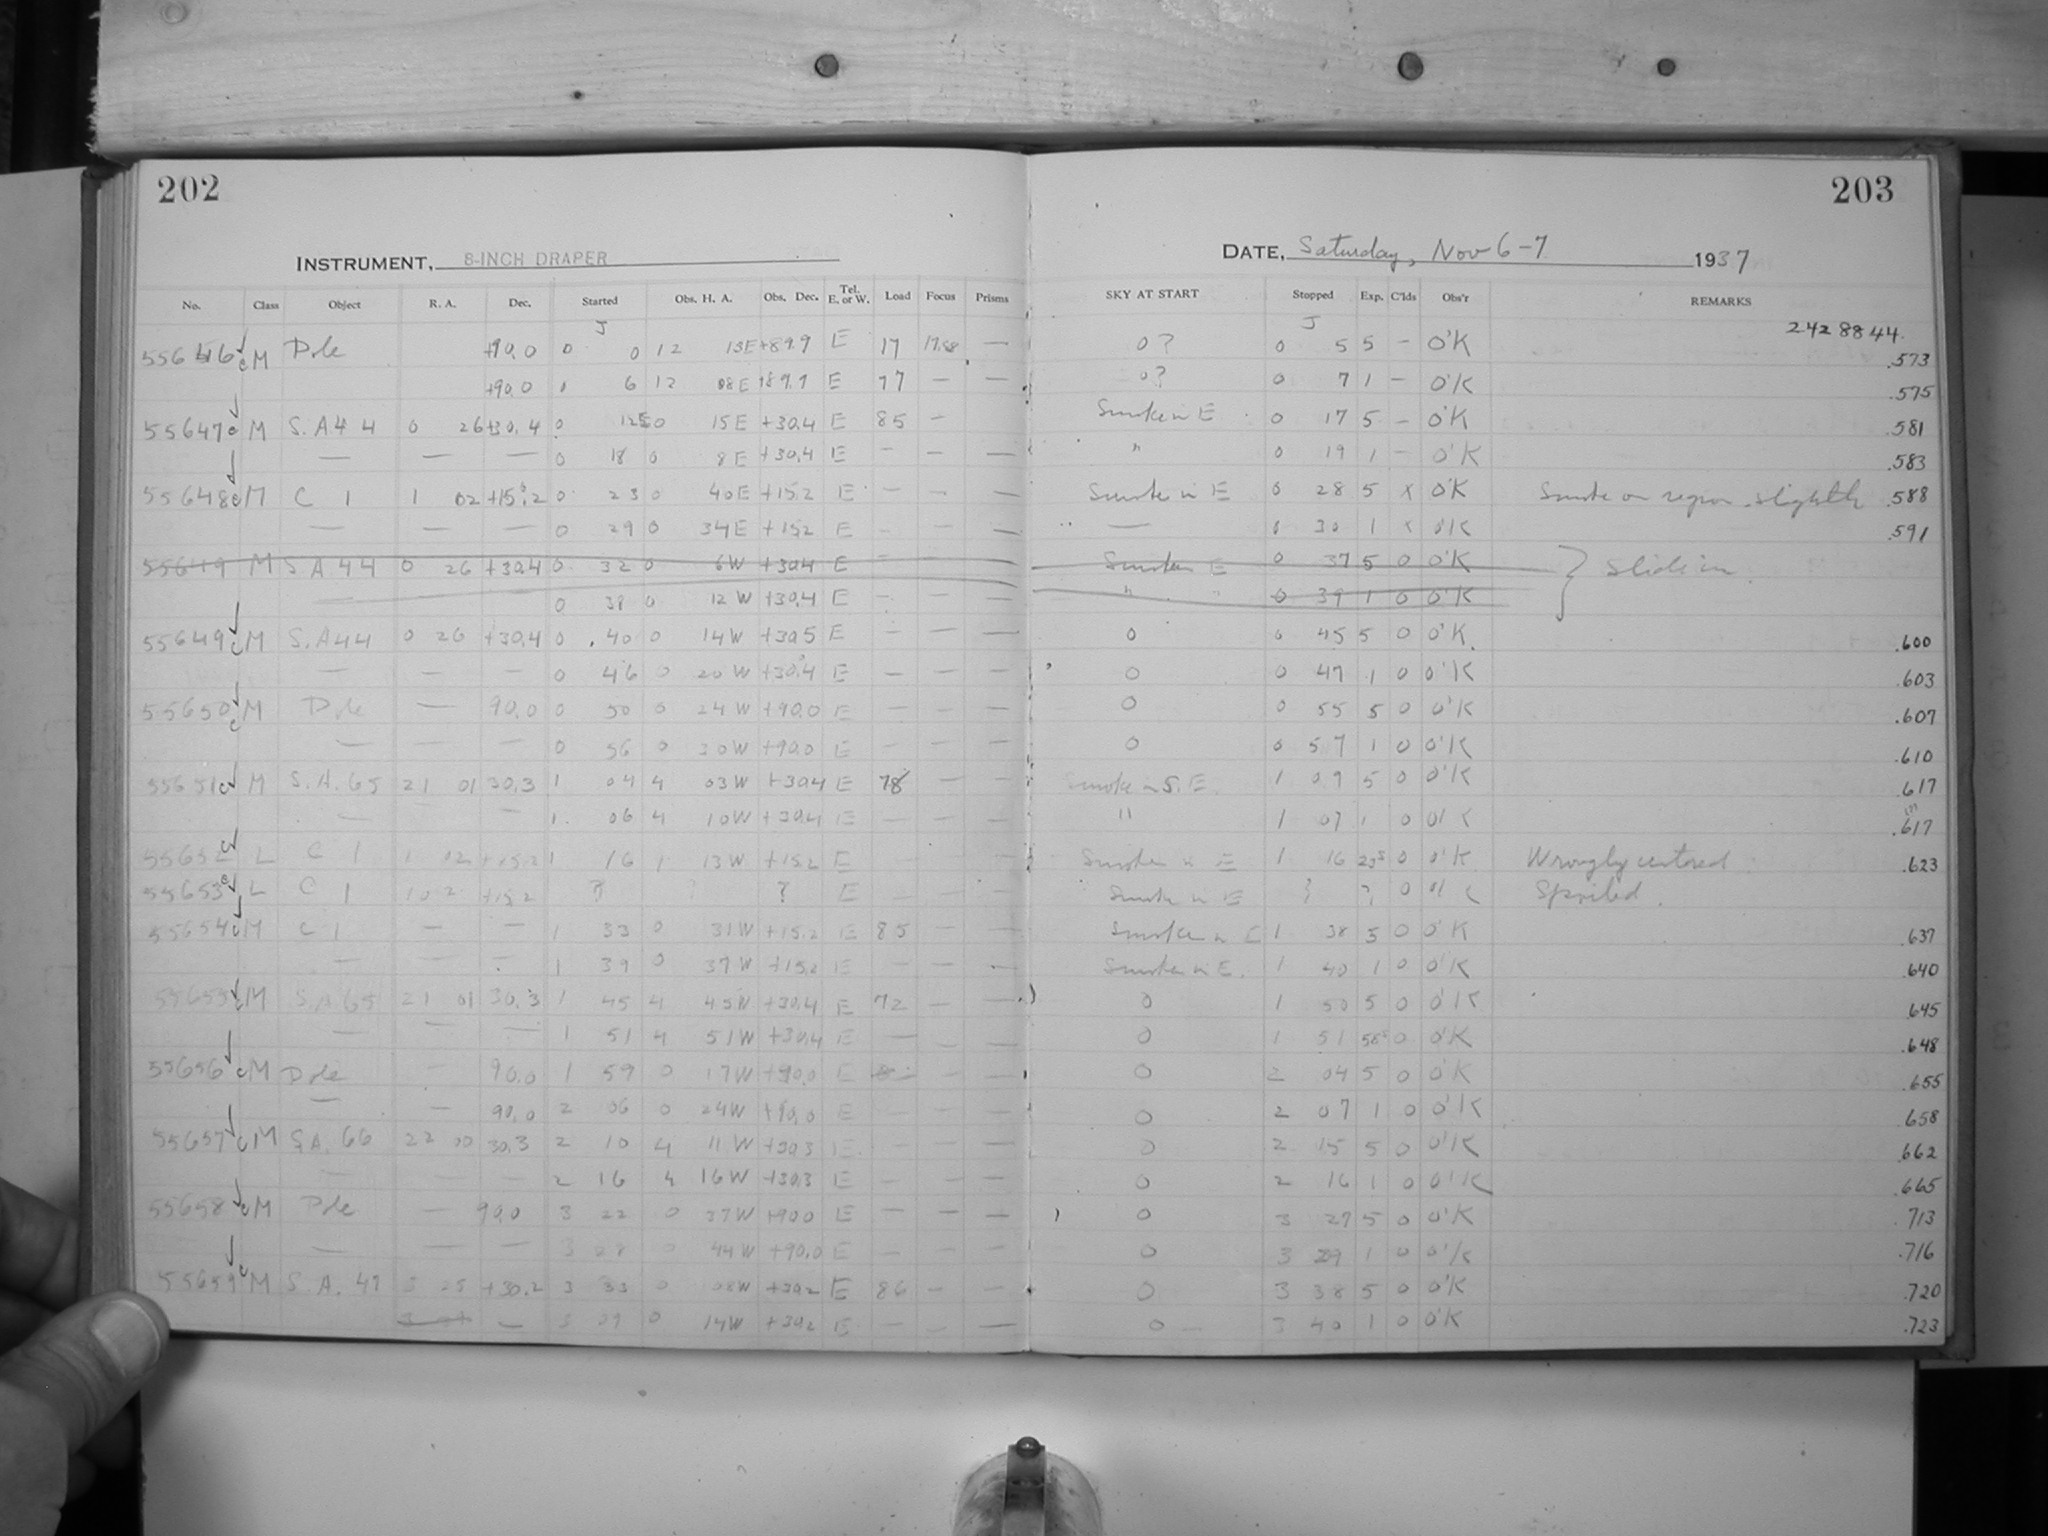 202
203
INSTRUMENT, 8-INCH DRAPER
DATE, Saturday, Nov 6-7 1937
No. Class Object R. A. Dec. Started Obs. H. A. Obs. Dec. Tel. E. or W. Load Focus Prisms SKY AT START Stopped Exp. C'lds Obs'r REMARKS
J J 2428844.
55646 M Pole +90.0 0 0 12 13E +89.9 E 17 — 0? 0 5 5 – O'K .573
+90.0 0 6 12 08E +89.9 E 17 — — 0? 0 7 1 – O'K .575
55647 M S.A 44 0 26 +30.4 0 0 15E +30.4 E 85 – Smoke in E 0 17 5 – O'K .581
— — — 0 18 0 8E +30.4 E – — — " 0 19 1 – O'K .583
55648 M C 1 1 02 +15.2 0 23 0 40E +15.2 E – — — Smoke in E 0 28 5 x O'K Smoke on region slightly .588
— — — 0 29 0 34E +15.2 E – — — — 0 30 1 x O'K .591
55649 M S A 44 0 26 +30.4 0 32 0 6W +30.4 E Smoke in E 0 37 5 0 O'K } Slide in
— 0 38 0 12W +30.4 E – — — " 0 39 1 0 O'K
55649 M S.A 44 0 26 +30.4 0 40 0 14W +30.5 E – — — 0 0 45 5 0 O'K .600
— — — 0 46 0 20W +30.4 E — — — 0 0 47 1 0 O'K .603
55650 M Pole — 90.0 0 50 0 24W +90.0 E — — — 0 0 55 5 0 O'K .607
— — — 0 56 0 30W +90.0 E — — — 0 0 57 1 0 O'K .610
55651 M S.A. 65 21 01 30.3 1 04 4 03W +30.4 E 78 — — Smoke in S.E. 1 09 5 0 O'K .617
— — — 1 06 4 10W +30.4 E — — — " 1 07 1 0 O'K .617 (?)
55652 L C 1 1 02 +15.2 1 16 1 13W +15.2 E — — — Smoke in E 1 16 0 O'K Wrongly centered .623
55653 L C 1 1 02 +15.2 ? ? ? E — — — Smoke in E ? ? 0 O'K Spoiled.
55654 M C 1 — — 1 33 0 31W +15.2 E 85 — — Smoke in E 1 38 5 0 O'K .637
— — — 1 39 0 37W +15.2 E — — — Smoke in E. 1 40 1 0 O'K .640
55655 M S.A 65 21 01 30.3 1 45 4 45W +30.4 E 72 — — 0 1 50 5 0 O'K .645
— — — 1 51 4 51W +30.4 E — — — 0 1 51 58s 0 O'K .648
55656 M Pole — 90.0 1 59 0 17W +90.0 E — — 0 2 04 5 0 O'K .655
— — 90.0 2 06 0 24W +90.0 E — — — 0 2 07 1 0 O'K .658
55657 M S.A. 66 22 00 30.3 2 10 4 11W +30.3 E — — — 0 2 15 5 0 O'K .662
— — — 2 16 4 16W +30.3 E — — — 0 2 16 1 0 O'K .665
55658 M Pole — 90.0 3 22 0 37W +90.0 E — — — 0 3 27 5 0 O'K .713
— — — 3 28 0 44W +90.0 E — — — 0 3 29 1 0 O'K .716
55659 M S.A. 47 3 25 +30.2 3 33 0 08W +30.2 E 86 — — 0 3 38 5 0 O'K .720
— 3 39 0 14W +30.2 E — — — 0 3 40 1 0 O'K .723